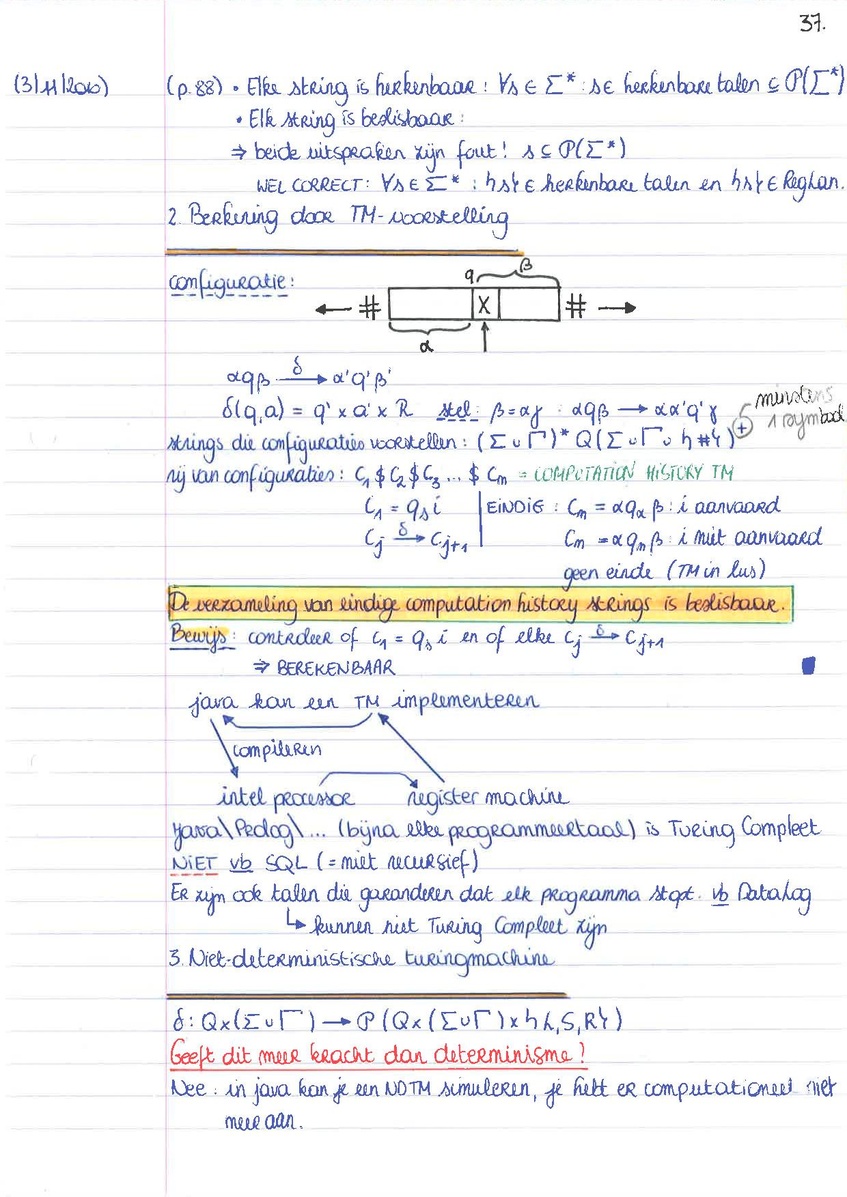 37.
(3/11/2010) (p.88) • Elke string is herkenbaar : ∀s ∈ Σ* : s ∈ herkenbare talen ⊆ P(Σ*)
• Elk string is beslisbaar :
⇒ beide uitspraken zijn fout! s ⊆ P(Σ*)
WEL CORRECT : ∀s ∈ Σ* : {s} ∈ herkenbare talen en {s} ∈ RegLan.
2. Berkening door TM-voorstelling
configuratie :
q β
← # X # →
α
αqβ —δ→ α'q'β'
δ(q,a) = q' × a' × R stel : β = aγ : αqβ → αa'q'γ
minstens
1 symbool
strings die configuraties voorstellen : (Σ ∪ Γ)* Q (Σ ∪ Γ ∪ {#})⁺
rij van configuraties : C₁ $ C₂ $ C₃ ... $ Cm = COMPUTATION HISTORY TM
C₁ = qₛi EINDIG : Cm = αqₐβ : i aanvaard
Cj —δ→ Cj+1 Cm = αqₙβ : i niet aanvaard
geen einde (TM in lus)
De verzameling van eindige computation history strings is beslisbaar.
Bewijs : controleer of C₁ = qₛi en of elke Cj —δ→ Cj+1
⇒ BEREKENBAAR
java kan een TM implementeren
compileren
intel processor register machine
Java\Prolog\... (bijna elke programmeertaal) is Turing Compleet
NIET vb SQL (= niet recursief)
Er zijn ook talen die garanderen dat elk programma stopt. vb DataLog
↳ kunnen niet Turing Compleet zijn
3. Niet-deterministische turingmachine
δ : Q×(Σ ∪ Γ) → P(Q×(Σ ∪ Γ)×{L,S,R})
Geeft dit meer kracht dan determinisme?
Nee : in java kan je een NDTM simuleren, je hebt er computationeel niet
meer aan.